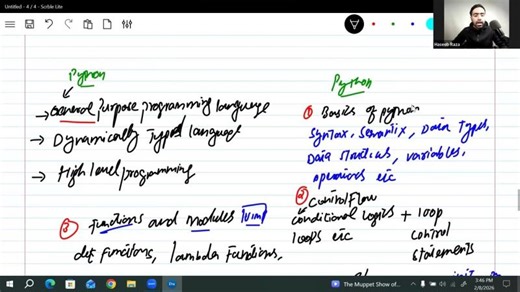 Untitled - 4 / 4 - Scrble Lite
Haseeb Raza
Python
→ General purpose programming language
→ Dynamically Typed language
→ High level programming
③ Functions and modules
def functions, lambda functions,
Python
① Basics of python
Syntax, Semantix, Data Types,
Data structures, variables,
operators etc
② Control Flow
conditional logics + loop
loops etc control
statements
The Muppet Show of...
3:46 PM
2/8/2026